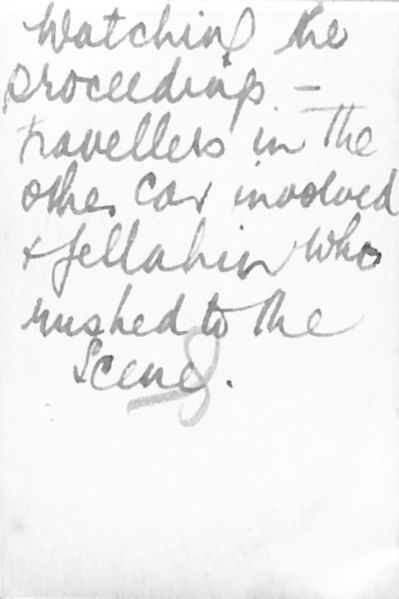 Watching the
proceedings -
travellers in the
other car involved
+ fellahin who
rushed to the
scene.